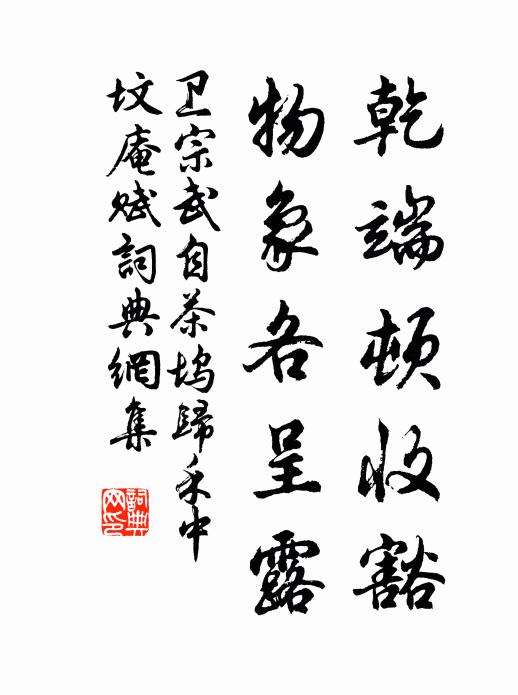 乾端頓收豁
物象各呈露
卫宗武自茶塢歸禾中
坟庵赋詞典網集
詞典网印